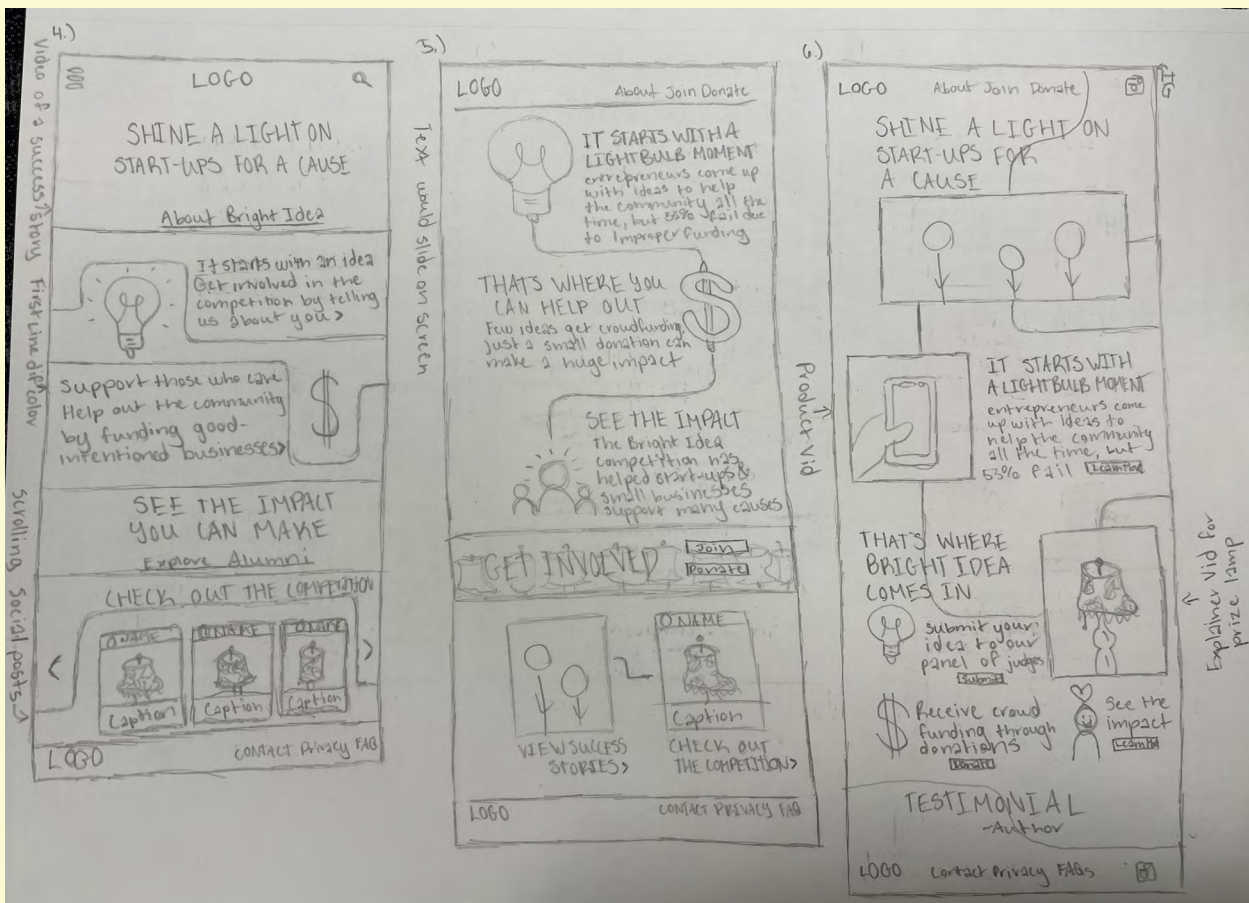 4.)
LOGO
SHINE A LIGHT ON
START-UPS FOR A CAUSE
About Bright Idea
It starts with an idea
Get involved in the
competition by telling
us about you>
Support those who care
Help out the community
by funding good-
intentioned businesses>
$
SEE THE IMPACT
YOU CAN MAKE
Explore Alumni
CHECK OUT THE COMPETITION
< O NAME O NAME O NAME >
Caption Caption Caption
LOGO CONTACT Privacy FAQ
Video of a success story
First line diff color
Scrolling Social posts
5.)
Text would slide on screen
LOGO About Join Donate
IT STARTS WITH A
LIGHTBULB MOMENT
entrepreneurs come up
with ideas to help
the community all the
time, but 53% fail due
to improper funding
THATS WHERE YOU
CAN HELP OUT
Few ideas get crowdfunding.
Just a small donation can
make a huge impact
$
SEE THE IMPACT
The Bright Idea
competition has
helped start-ups &
small businesses
support many causes
GET INVOLVED
Join
Donate
O NAME
Caption
VIEW SUCCESS
STORIES>
CHECK OUT
THE COMPETITION>
LOGO CONTACT PRIVACY FAQ
6.)
LOGO About Join Donate
IG
SHINE A LIGHT ON
START-UPS FOR
A CAUSE
Product Vid
IT STARTS WITH
A LIGHTBULB MOMENT
entrepreneurs come
up with ideas to
help the community
all the time, but
53% fail
THAT'S WHERE
BRIGHT IDEA
COMES IN
submit your
idea to our
panel of judges
Submit
$
Receive crowd
funding through
donations
Donate
See the
impact
Explainer Vid for
prize lamp
TESTIMONIAL
-Author
LOGO Contact Privacy FAQs